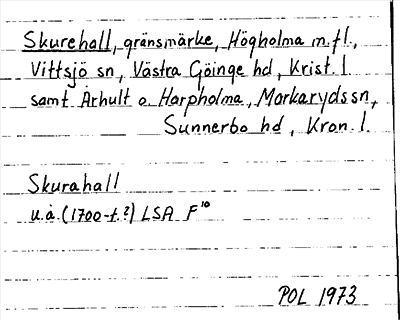 Skurehall, gränsmärke, Högholma m.fl.,
Vittsjö sn, Västra Göinge hd, Krist. l.
samt Århult o. Harpholma, Markaryds sn,
Sunnerbo hd, Kron. l.
Skurahall
u.å. (1700-t.?) LSA F¹⁰
POL 1973